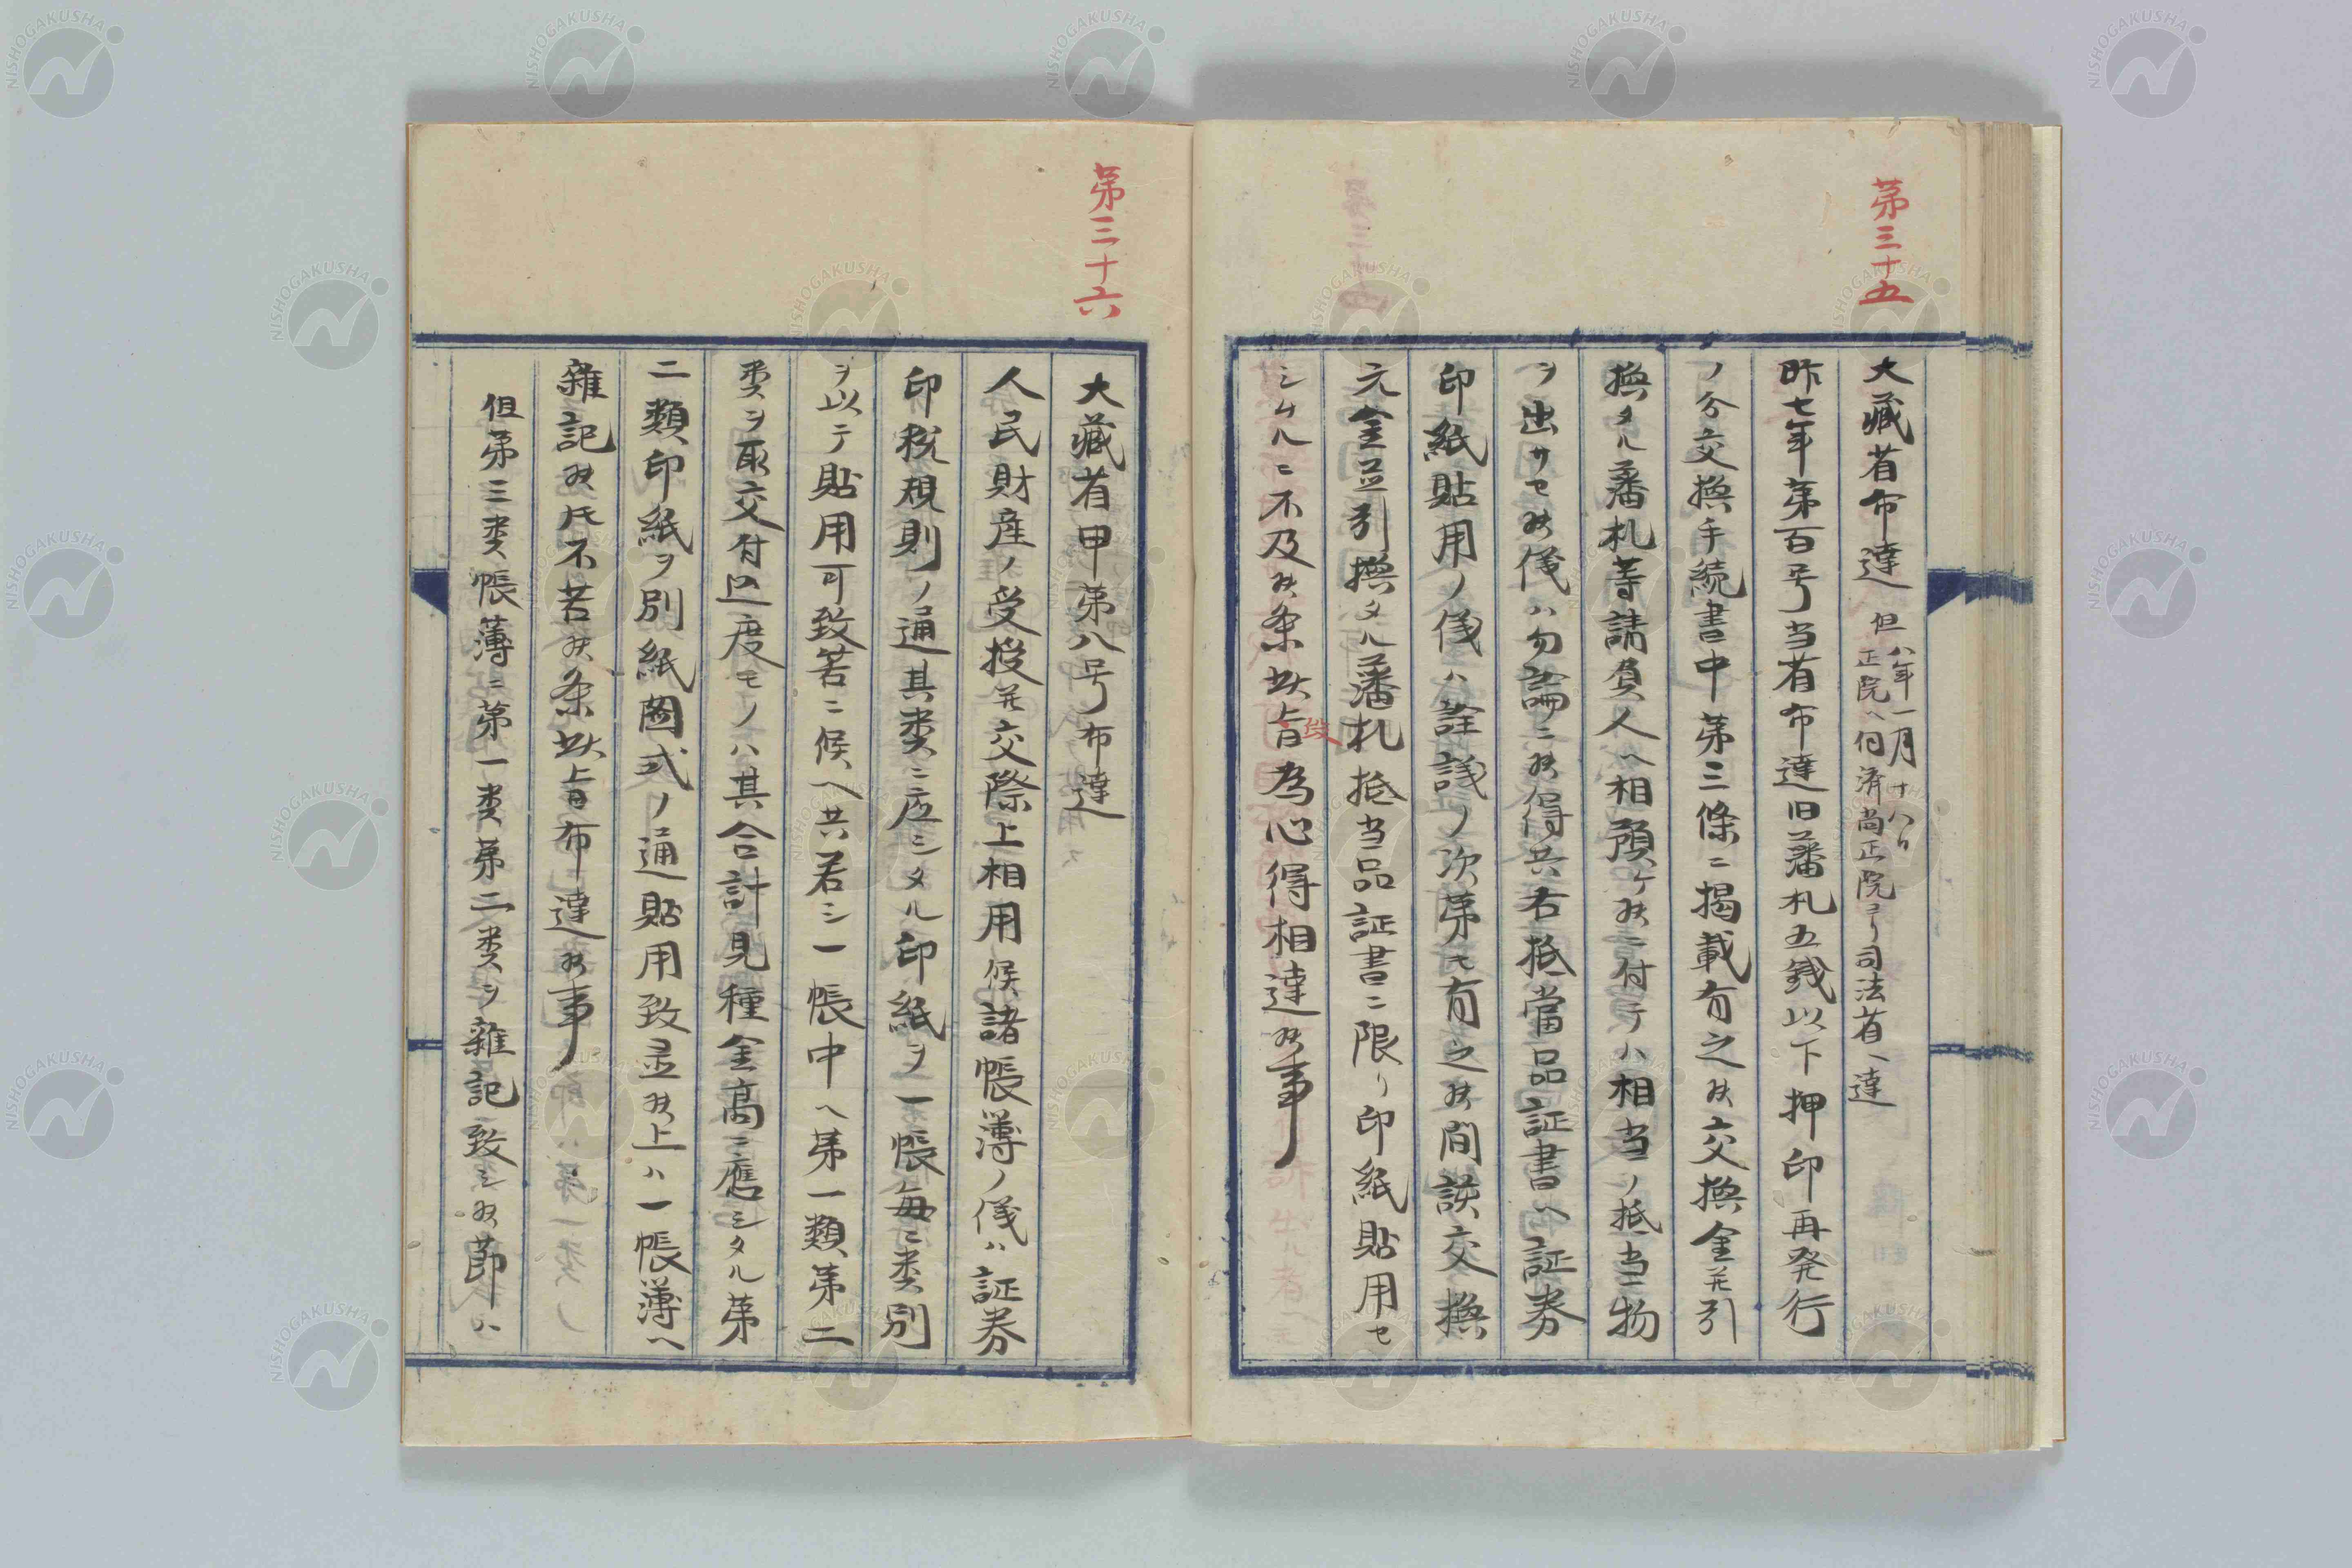 第三十五
大藏省布達 但 八年一月十八日正院ヘ伺済尚正院ヨリ司法省ヘ達
昨七年第百号当省布達旧藩札五銭以下押印再発行
ノ分交換手続書中第三條ニ掲載有之候交換金并引
換タル藩札等請負人ヘ相預ケ候ニ付テハ相当ノ抵当物
ヲ出サセ候儀ハ勿論ニ候得共右抵當品証書ヘ証券
印紙貼用ノ儀ハ詮議ノ次第モ有之候間該交換
元金並引換タル藩札抵当品証書ニ限リ印紙貼用セ
シムルニ不及候条此旨為心得相達候事
第三十六
大藏省甲第八号布達
人民財産ノ受授并交際上相用候諸帳簿ノ儀ハ証券
印税規則ノ通其類ニ応シタル印紙ヲ一帳毎ニ類別
ヲ以テ貼用可致筈ニ候ヘ共若シ一帳中ヘ第一類第二
類ヲ取交付込度モノハ其合計見積金高ニ應シタル第
二類印紙ヲ別紙圖式ノ通貼用致並候上ハ一帳簿ヘ
雜記候氏不苦候条此旨布達候事
但第三類帳簿ニ第一類第二類ヲ雜記致シ候節ハ
NISHOGAKUSHA